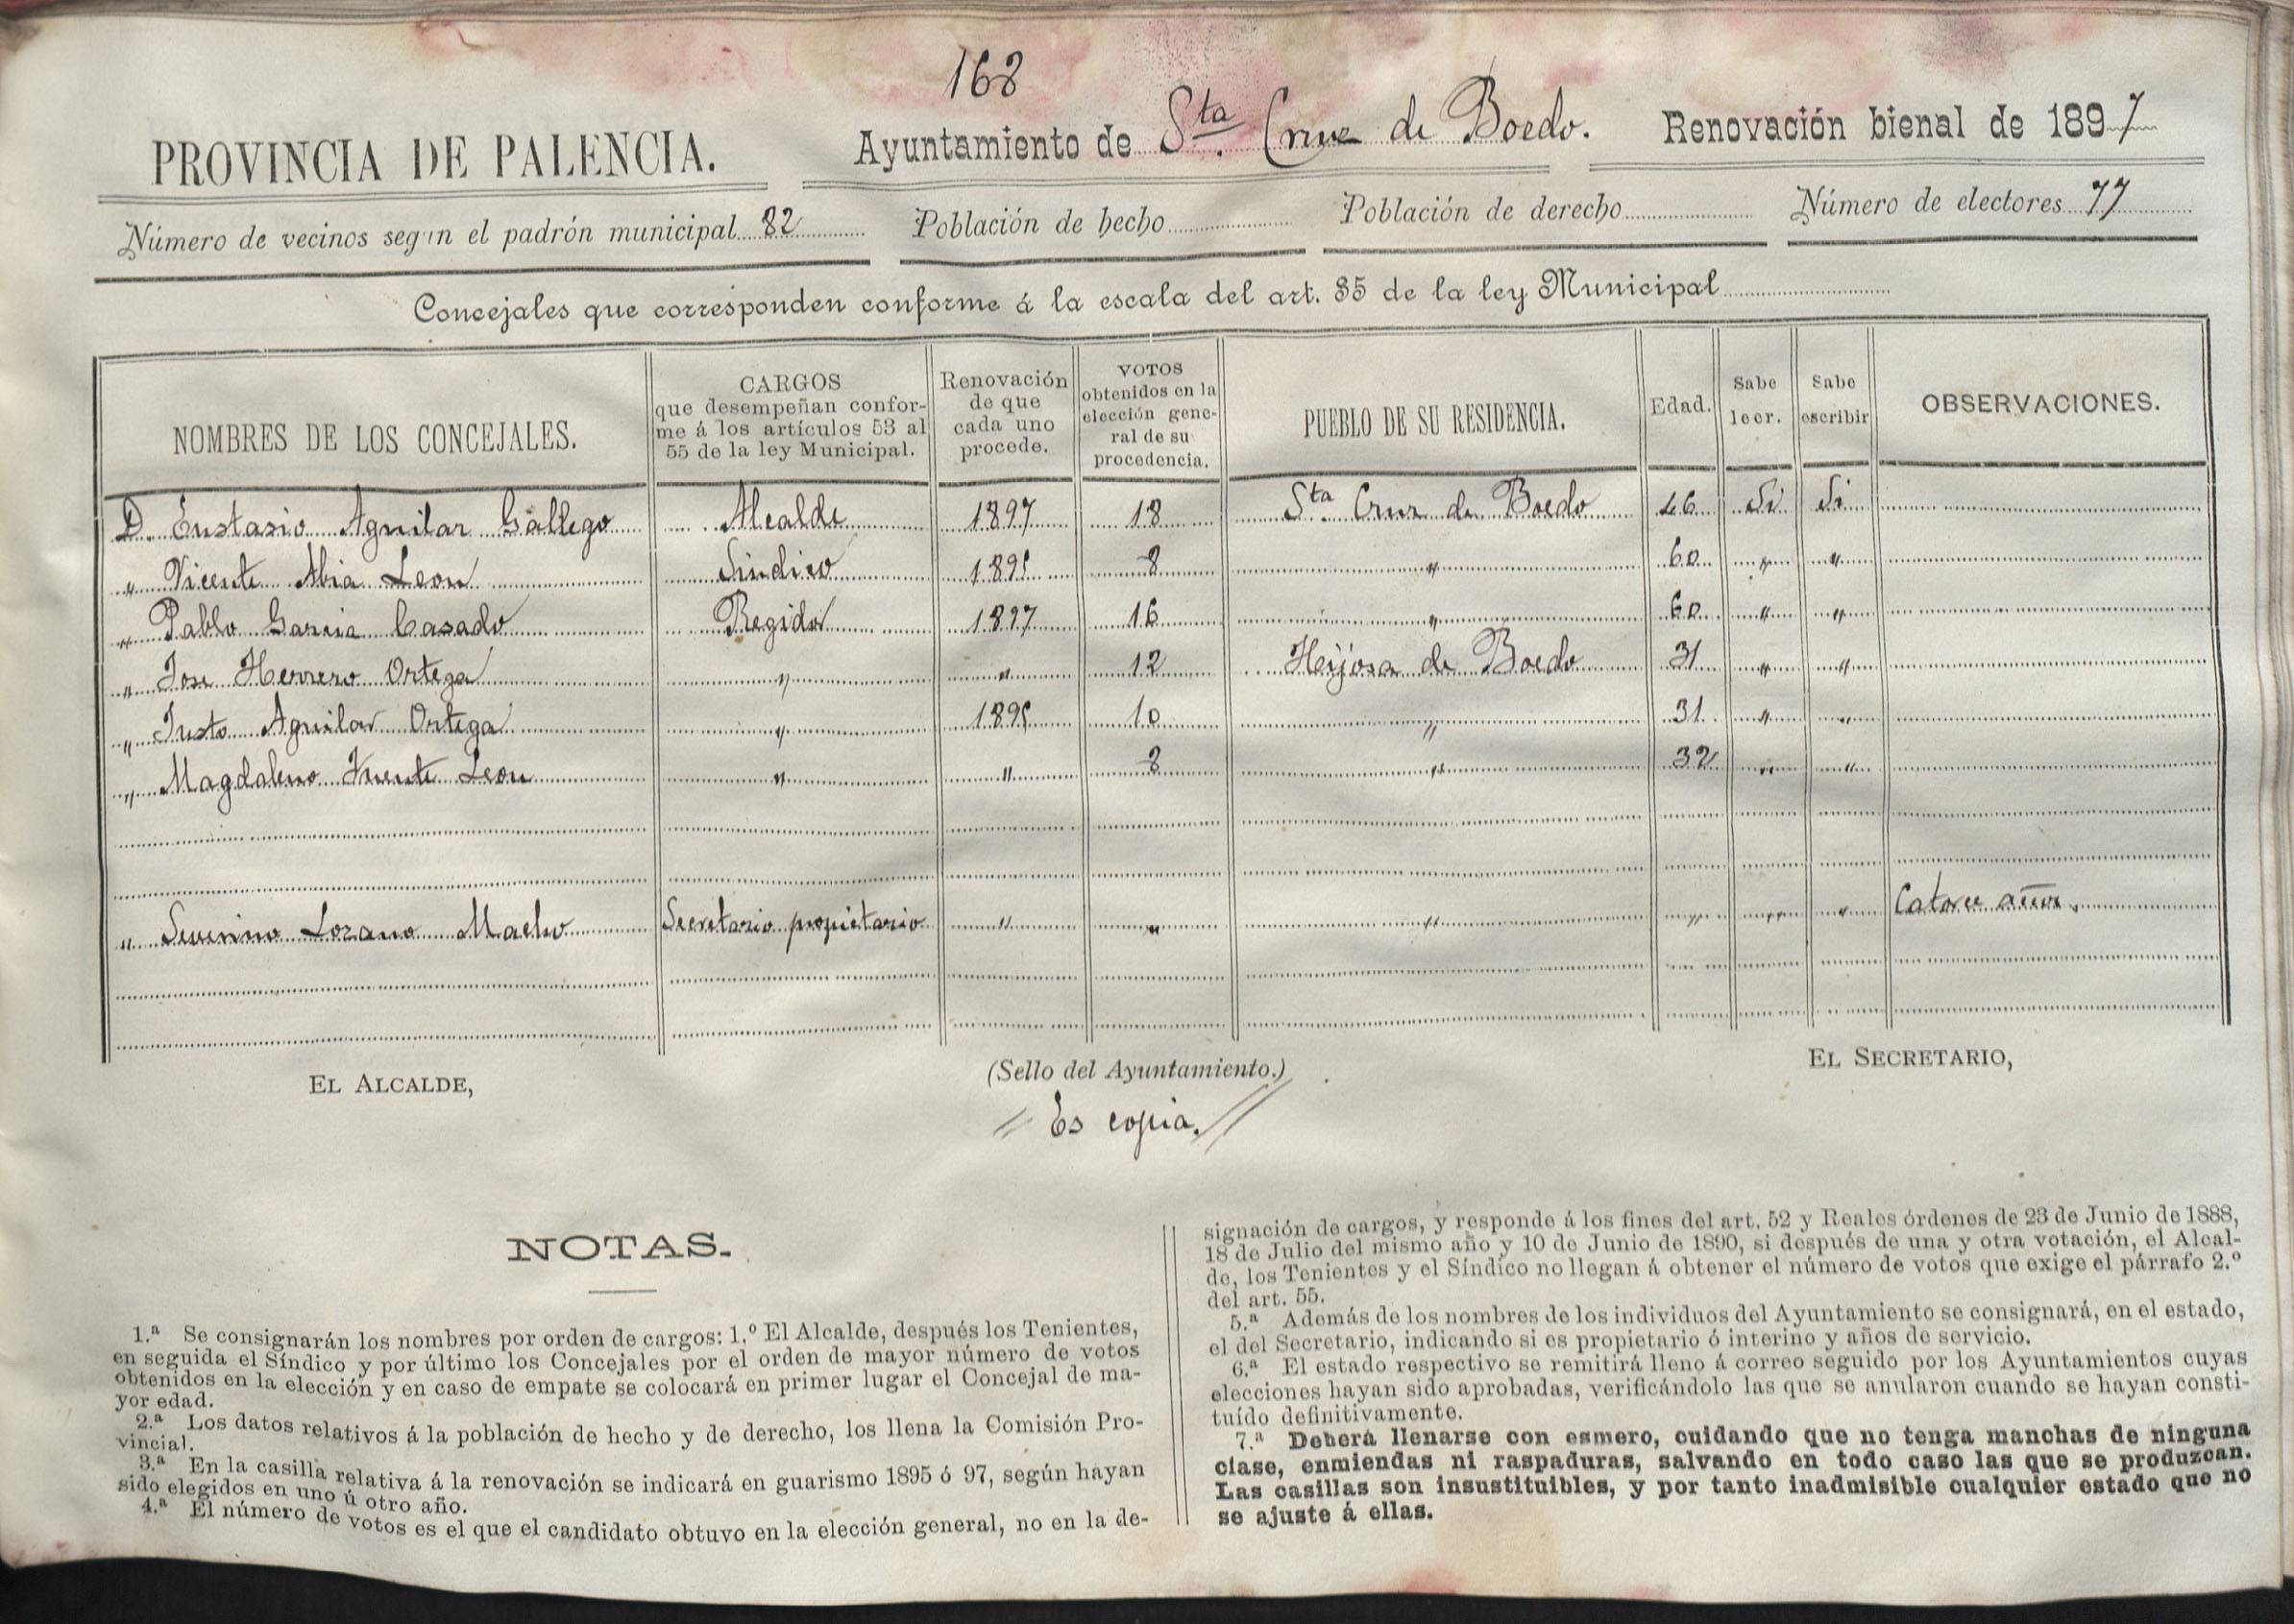 168
PROVINCIA DE PALENCIA. Ayuntamiento de Sta. Cruz de Boedo. Renovación bienal de 1897
Número de vecinos según el padrón municipal 82 Población de hecho Población de derecho Número de electores 77
Concejales que corresponden conforme á la escala del art. 35 de la ley Municipal
NOMBRES DE LOS CONCEJALES. CARGOS que desempeñan conforme á los artículos 53 al 55 de la ley Municipal. Renovación de que cada uno procede. VOTOS obtenidos en la elección general de su procedencia. PUEBLO DE SU RESIDENCIA. Edad. Sabe leer. Sabe escribir OBSERVACIONES.
D. Eustasio Aguilar Gallego Alcalde 1897 18 Sta Cruz de Boedo 46 Si Si
" Vicente Abia Leon Sindico 1895 8 " 60 " "
" Pablo Garcia Casado Regidor 1897 16 " 60 " "
" Jose Herrero Ortega " " 12 Hijosa de Boedo 31 " "
" Justo Aguilar Ortega " 1895 10 " 31 " "
" Magdaleno Fuente Leon " " 8 " 32 " "
" Severino Lozano Macho Secretario propietario " " " " " " Catorce años.
EL ALCALDE, (Sello del Ayuntamiento.) EL SECRETARIO,
// Es copia. //
NOTAS.
1.ª Se consignarán los nombres por orden de cargos: 1.º El Alcalde, después los Tenientes,
en seguida el Síndico y por último los Concejales por el orden de mayor número de votos
obtenidos en la elección y en caso de empate se colocará en primer lugar el Concejal de ma-
yor edad.
2.ª Los datos relativos á la población de hecho y de derecho, los llena la Comisión Pro-
vincial.
3.ª En la casilla relativa á la renovación se indicará en guarismo 1895 ó 97, según hayan
sido elegidos en uno ú otro año.
4.ª El número de votos es el que el candidato obtuvo en la elección general, no en la de-
signación de cargos, y responde á los fines del art. 52 y Reales órdenes de 23 de Junio de 1888,
18 de Julio del mismo año y 10 de Junio de 1890, si después de una y otra votación, el Alcal-
de, los Tenientes y el Síndico no llegan á obtener el número de votos que exige el párrafo 2.º
del art. 55.
5.ª Además de los nombres de los individuos del Ayuntamiento se consignará, en el estado,
el del Secretario, indicando si es propietario ó interino y años de servicio.
6.ª El estado respectivo se remitirá lleno á correo seguido por los Ayuntamientos cuyas
elecciones hayan sido aprobadas, verificándolo las que se anularon cuando se hayan consti-
tuído definitivamente.
7.ª Deberá llenarse con esmero, cuidando que no tenga manchas de ninguna
clase, enmiendas ni raspaduras, salvando en todo caso las que se produzcan.
Las casillas son insustituibles, y por tanto inadmisible cualquier estado que no
se ajuste á ellas.